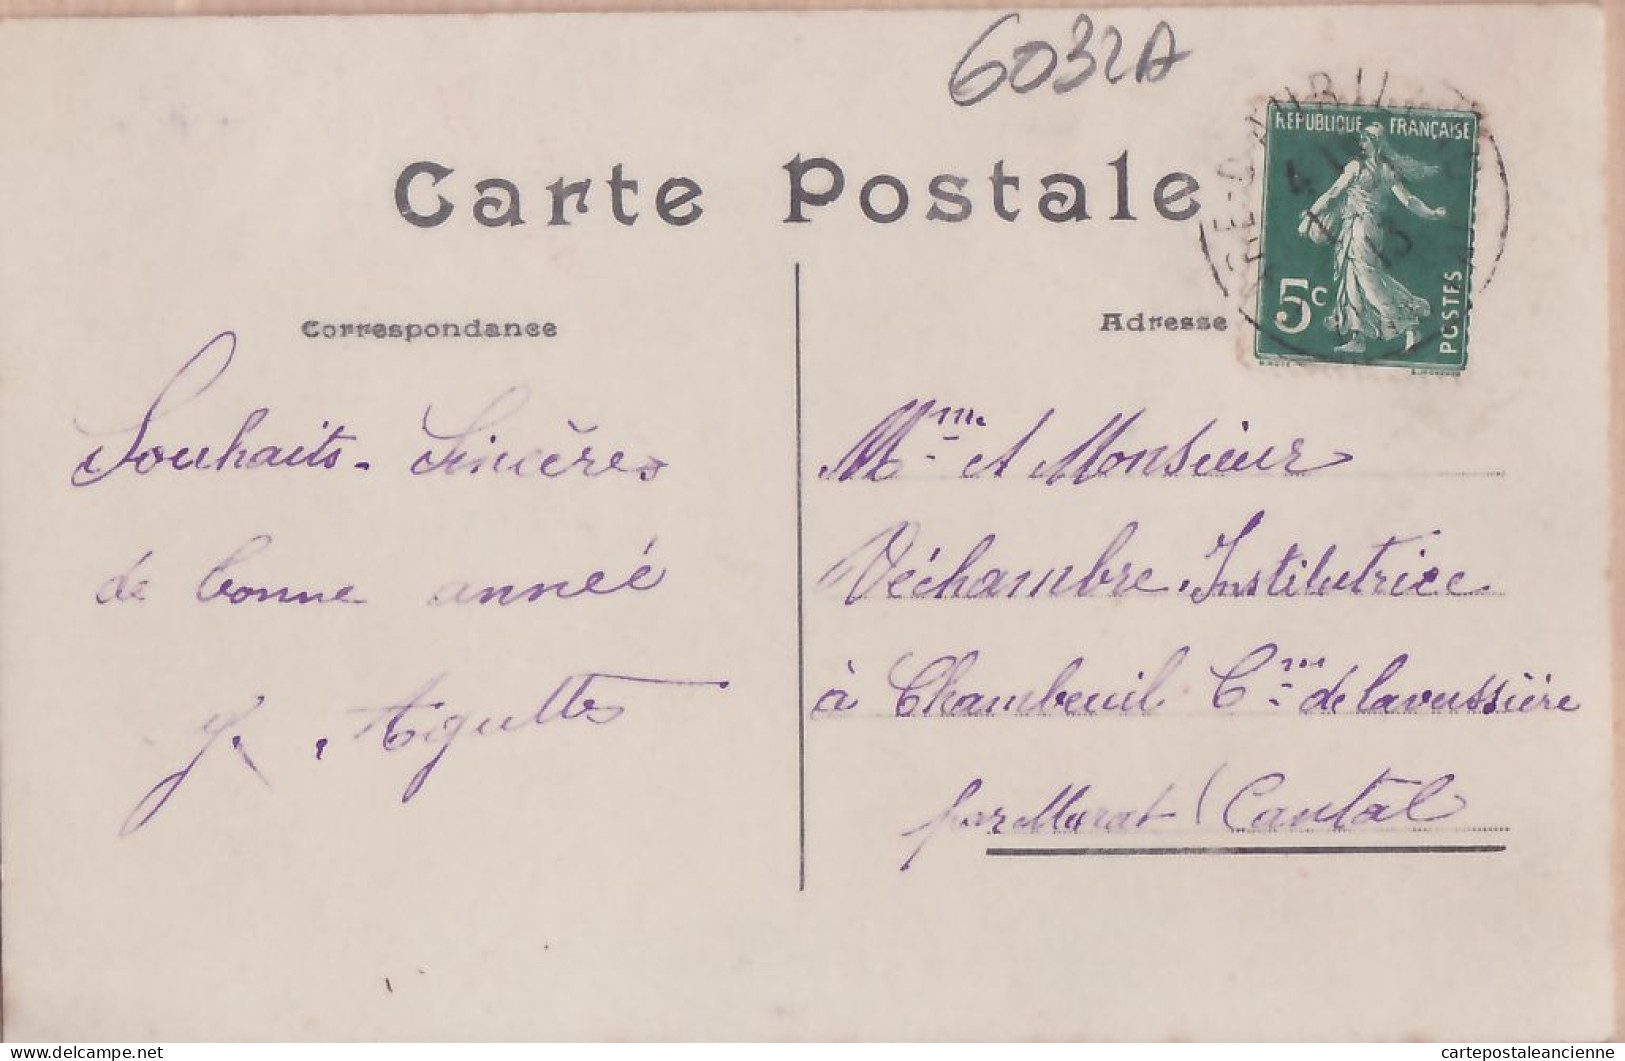 6032A
Carte Postale
RÉPUBLIQUE FRANÇAISE
5c
POSTES
4
13
Correspondance
Adresse
Souhaits - Sincères
de bonne année
J. Agutte
Mme et Monsieur
Véchambre, Institutrice
à Chambeuil Cne de Laveissière
par Murat (Cantal
delcampe.net
cartepostaleancienne